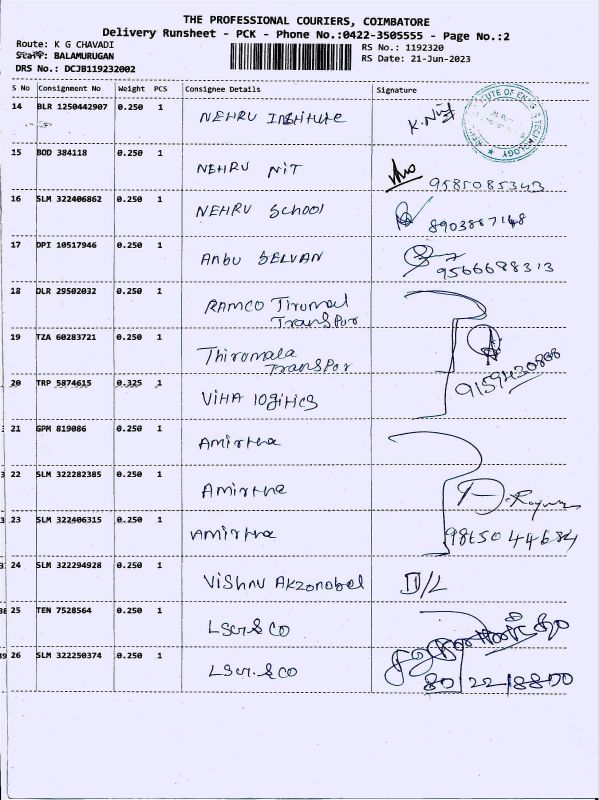 THE PROFESSIONAL COURIERS, COIMBATORE
Delivery Runsheet - PCK - Phone No.:0422-3505555 - Page No.:2
Route: K G CHAVADI
RS No.: 1192320
Staff: BALAMURUGAN
RS Date: 21-Jun-2023
DRS No.: DCJB119232002
S No Consignment No Weight PCS Consignee Details Signature
14 BLR 1250442907 0.250 1 NEHRU Institute
15 BOD 384118 0.250 1 NEHRU NIT
9585085343
16 SLM 322406862 0.250 1 NEHRU School
8903887148
17 DPI 10517946 0.250 1 Anbu SELVAN
9566698313
18 DLR 29502032 0.250 1 RAMCO Tirumal
Transpor
19 TZA 60283721 0.250 1 Thiromala
Transpor
20 TRP 5874615 0.325 1 VIHA logitics
21 GPM 819086 0.250 1 Amirtha
22 SLM 322282385 0.250 1 Amirtha
23 SLM 322406315 0.250 1 Amirtha
24 SLM 322294928 0.250 1 Vishnu Akzonobel D/L
25 TEN 7528564 0.250 1
26 SLM 322250374 0.250 1